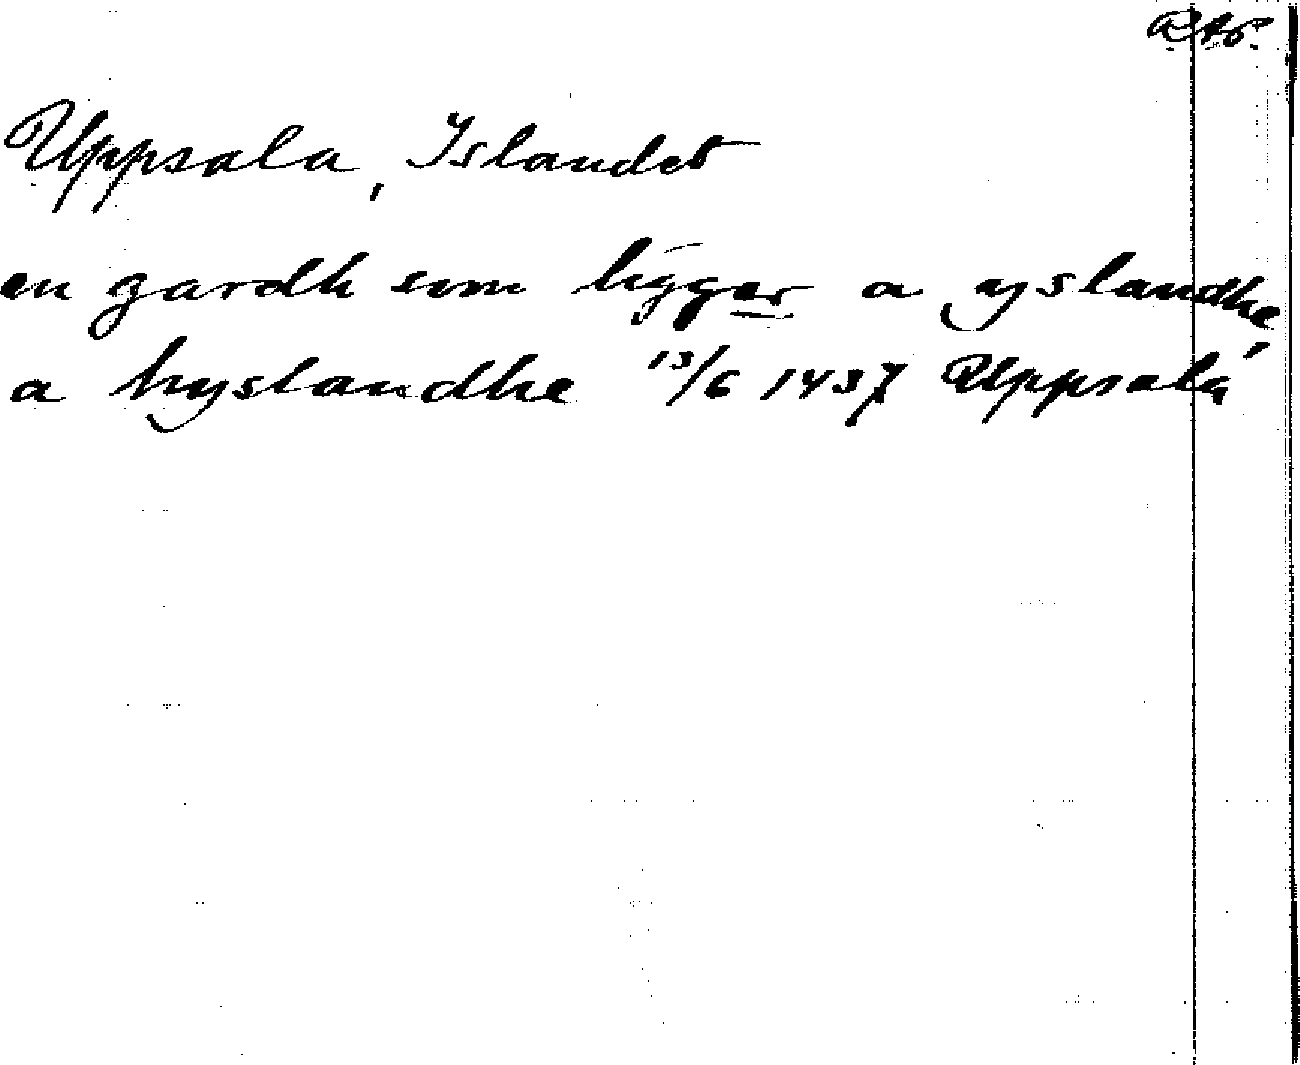 RAp.
Uppsala, Islandet
en gardh som ligger a yslandhe,
a hyslandhe 13/6 1437 Uppsala